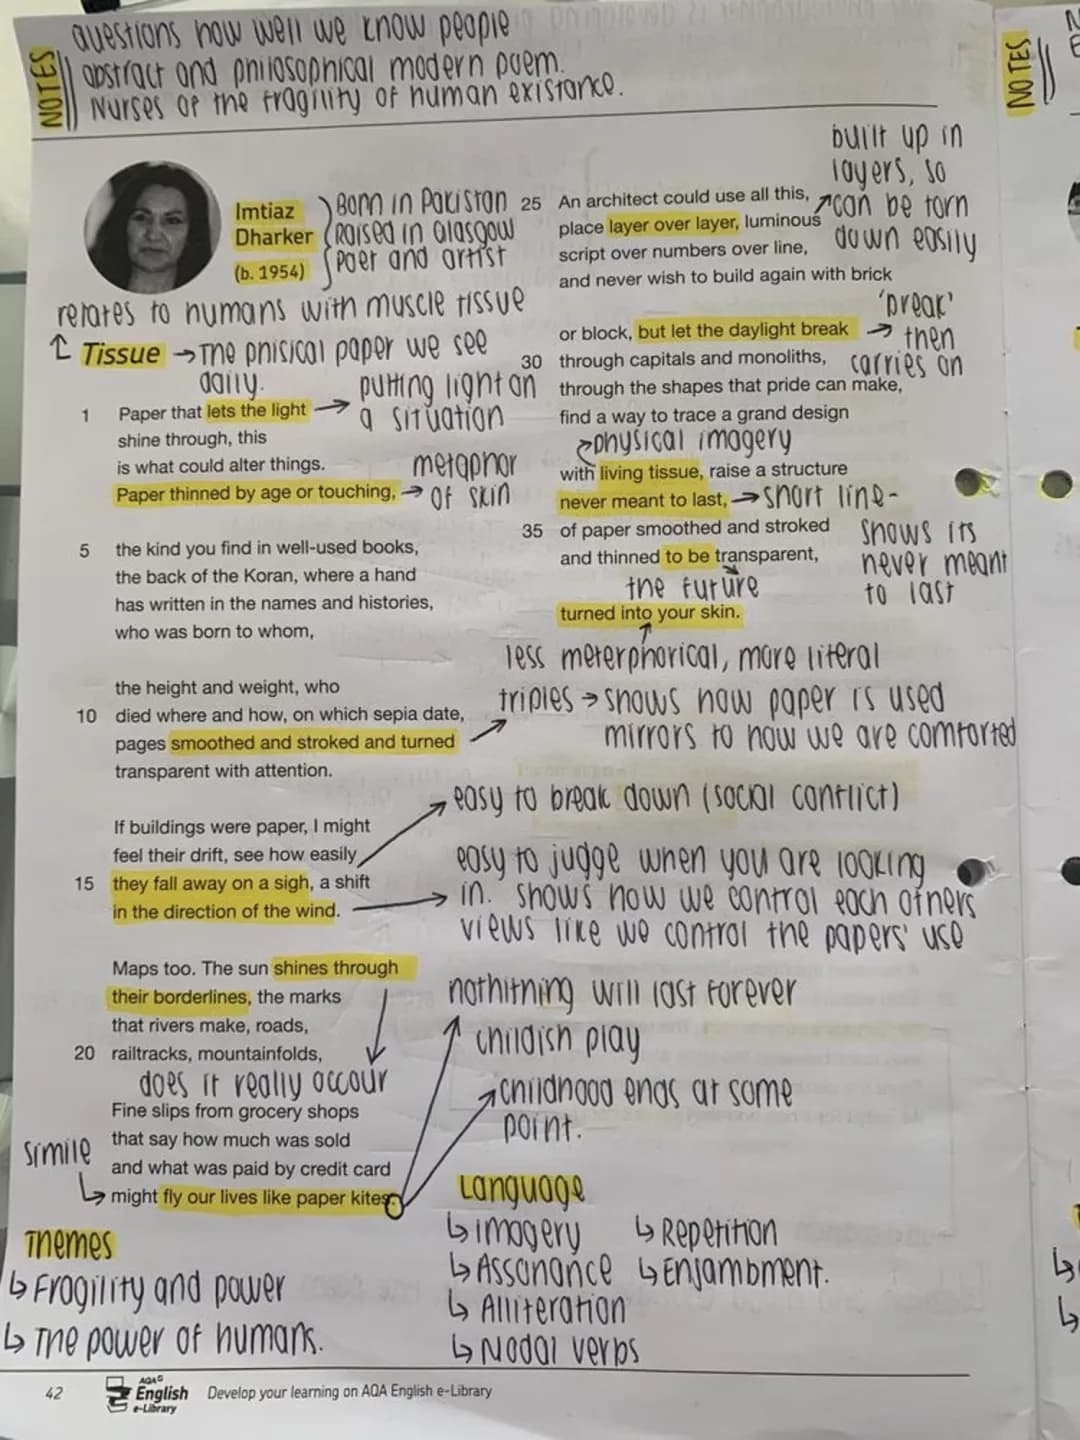 NOTES
questions how well we know people
abstract and philosophical modern poem.
Nurses of the fragility of human existance.
NOTES
Imtiaz
Dharker
(b. 1954)
Born in Pakistan
Raised in Glasgow
Poet and artist
relates to humans with muscle tissue
Tissue → The phisical paper we see
daily.
putting light on
a situation
1 Paper that lets the light
shine through, this
is what could alter things.
Paper thinned by age or touching,
metaphor
of skin
5 the kind you find in well-used books,
the back of the Koran, where a hand
has written in the names and histories,
who was born to whom,
the height and weight, who
10 died where and how, on which sepia date,
pages smoothed and stroked and turned
transparent with attention.
If buildings were paper, I might
feel their drift, see how easily
15 they fall away on a sigh, a shift
in the direction of the wind.
Maps too. The sun shines through
their borderlines, the marks
that rivers make, roads,
20 railtracks, mountainfolds,
does it really occour
Fine slips from grocery shops
that say how much was sold
and what was paid by credit card
might fly our lives like paper kites.
simile
Themes
↳ Fragility and power
↳ The power of humans.
built up in
layers, so
can be torn
down easily
25 An architect could use all this,
place layer over layer, luminous
script over numbers over line,
and never wish to build again with brick
'break'
then
carries on
or block, but let the daylight break
30 through capitals and monoliths,
through the shapes that pride can make,
find a way to trace a grand design
physical imagery
with living tissue, raise a structure
never meant to last, → short line-
shows its
never meant
to last
35 of paper smoothed and stroked
and thinned to be transparent,
the future
turned into your skin.
less meterphorical, more literal
triples → shows how paper is used
mirrors to how we are comforted
easy to break down (social conflict)
easy to jugge when you are looking
in. shows how we control each others
views like we control the papers' use
nothitning will last forever
childish play
childhood ends at some
point.
Language
↳ imagery
↳ Assonance
↳ Alliteration
↳ Modal verbs
↳ Repetition
↳ Enjambment.
42
AQA
English
e-Library
Develop your learning on AQA English e-Library